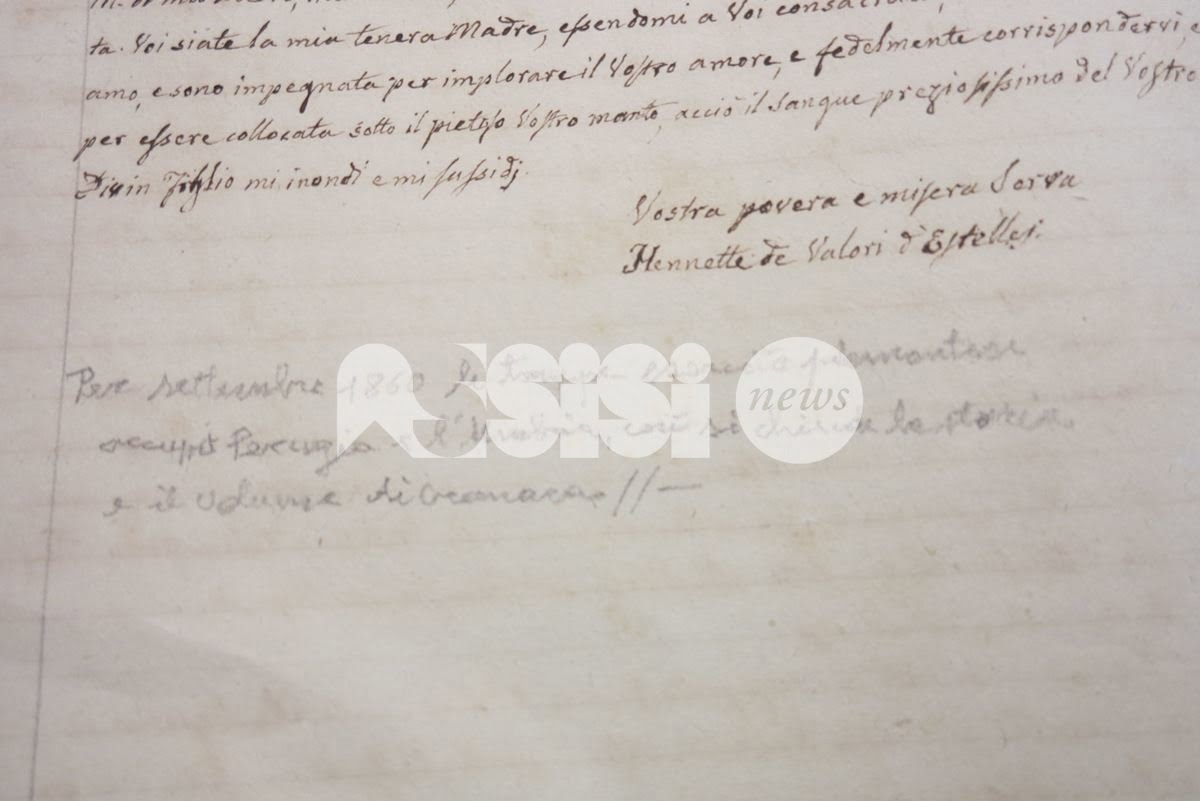 ta. Voi siate la mia tenera Madre, essendomi a Voi
amo, e sono impegnata per implorare il Vostro amore, e fedelmente corrispondervi, e
per essere collocata sotto il pietoso Vostro manto, acciò il Sangue preziosissimo del Vostro
Divin Figlio mi inondi e mi sussidj.
Vostra povera e misera Serva
Hennette de Valori d'Estelles.
Per settembre 1860 le truppe piemontese
occupò Perugia e l'Umbria, così si chiude la storia
e il volume di Cronaca //—
assisi news